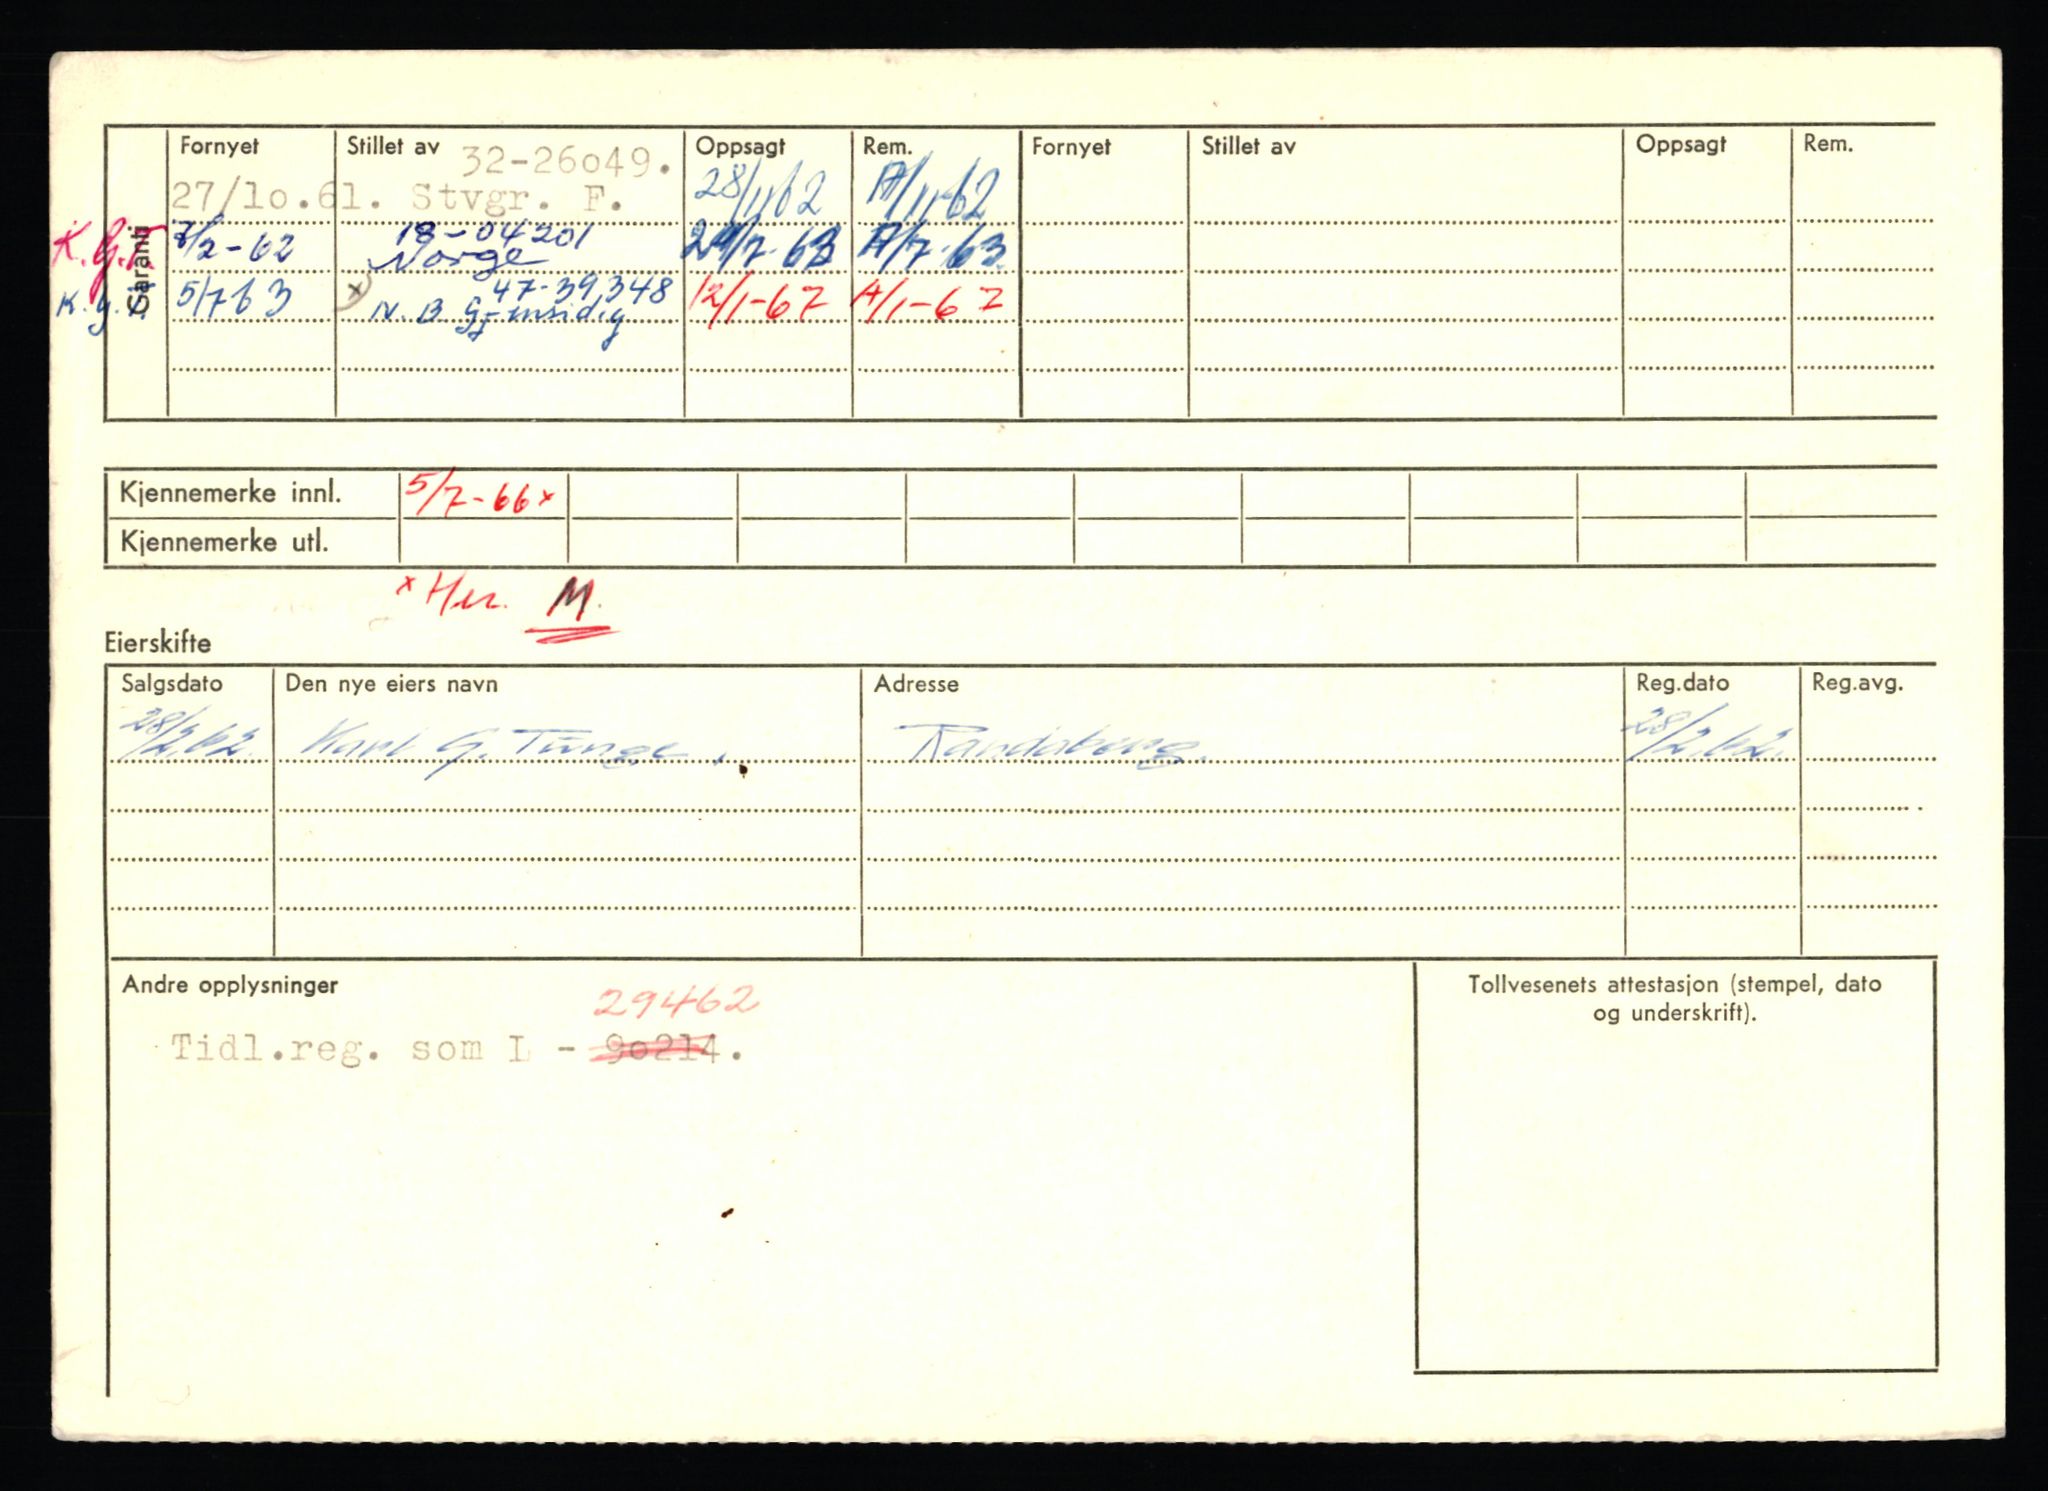 Fornyet Stillet av Oppsagt Rem. Fornyet Stillet av Oppsagt Rem.
32-26o49.
27/lo.61. Stvgr. F. 28/11 62 A/11-62
Garanti
K.G.T. 7/2-62 18-04201 Norge 29/7-63 A/7-63
K.G.T. 5/7 63 x 47-39348 N.B. Gjensidig 12/1-67 A/1-67
Kjennemerke innl. 5/7-66 x
Kjennemerke utl.
x Her. M.
Eierskifte
Salgsdato Den nye eiers navn Adresse Reg.dato Reg.avg.
28/2.62. Karl G. Tunge. Randaberg. 28/2.62.
Andre opplysninger
29462
Tidl.reg. som L - 9o214.
Tollvesenets attestasjon (stempel, dato
og underskrift).